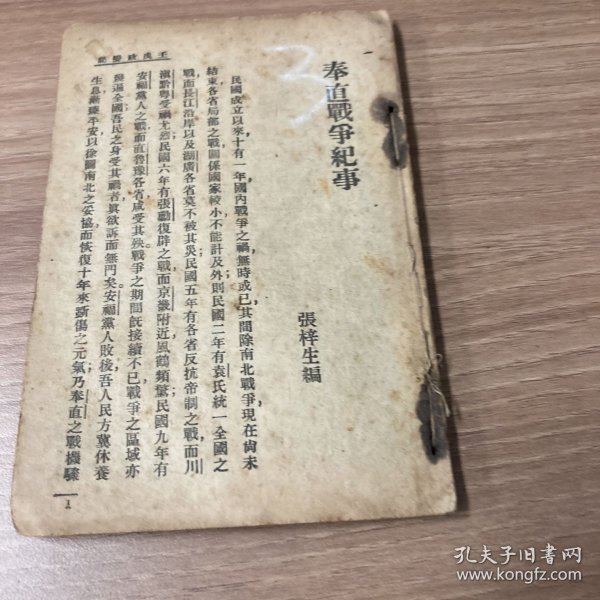 奉直戰爭紀事
張梓生編
民國成立以來十有一年國內戰爭之禍無時或已其間除南北戰爭現在尙未
結束各省局部之戰關係國家較小不能計及外則民國二年有袁氏統一全國之
戰而長江沿岸以及湖廣各省莫不被其災民國五年有各省反抗帝制之戰而川
滇黔粤受禍尤烈民國六年有張勳復辟之戰而京畿附近風鶴頻驚民國九年有
安福黨人之戰而直魯豫各省咸受其殃戰爭之期間旣接續不已戰爭之區域亦
徧全國吾民之身受其禍者眞欲訴而無門矣安福黨人敗後吾人民方冀休養
生息漸臻平安以徐圖南北之妥協而恢復十年來斲傷之元氣乃奉直之戰機驟
壬戌政變記
1
孔夫子旧书网
www.kongfz.com